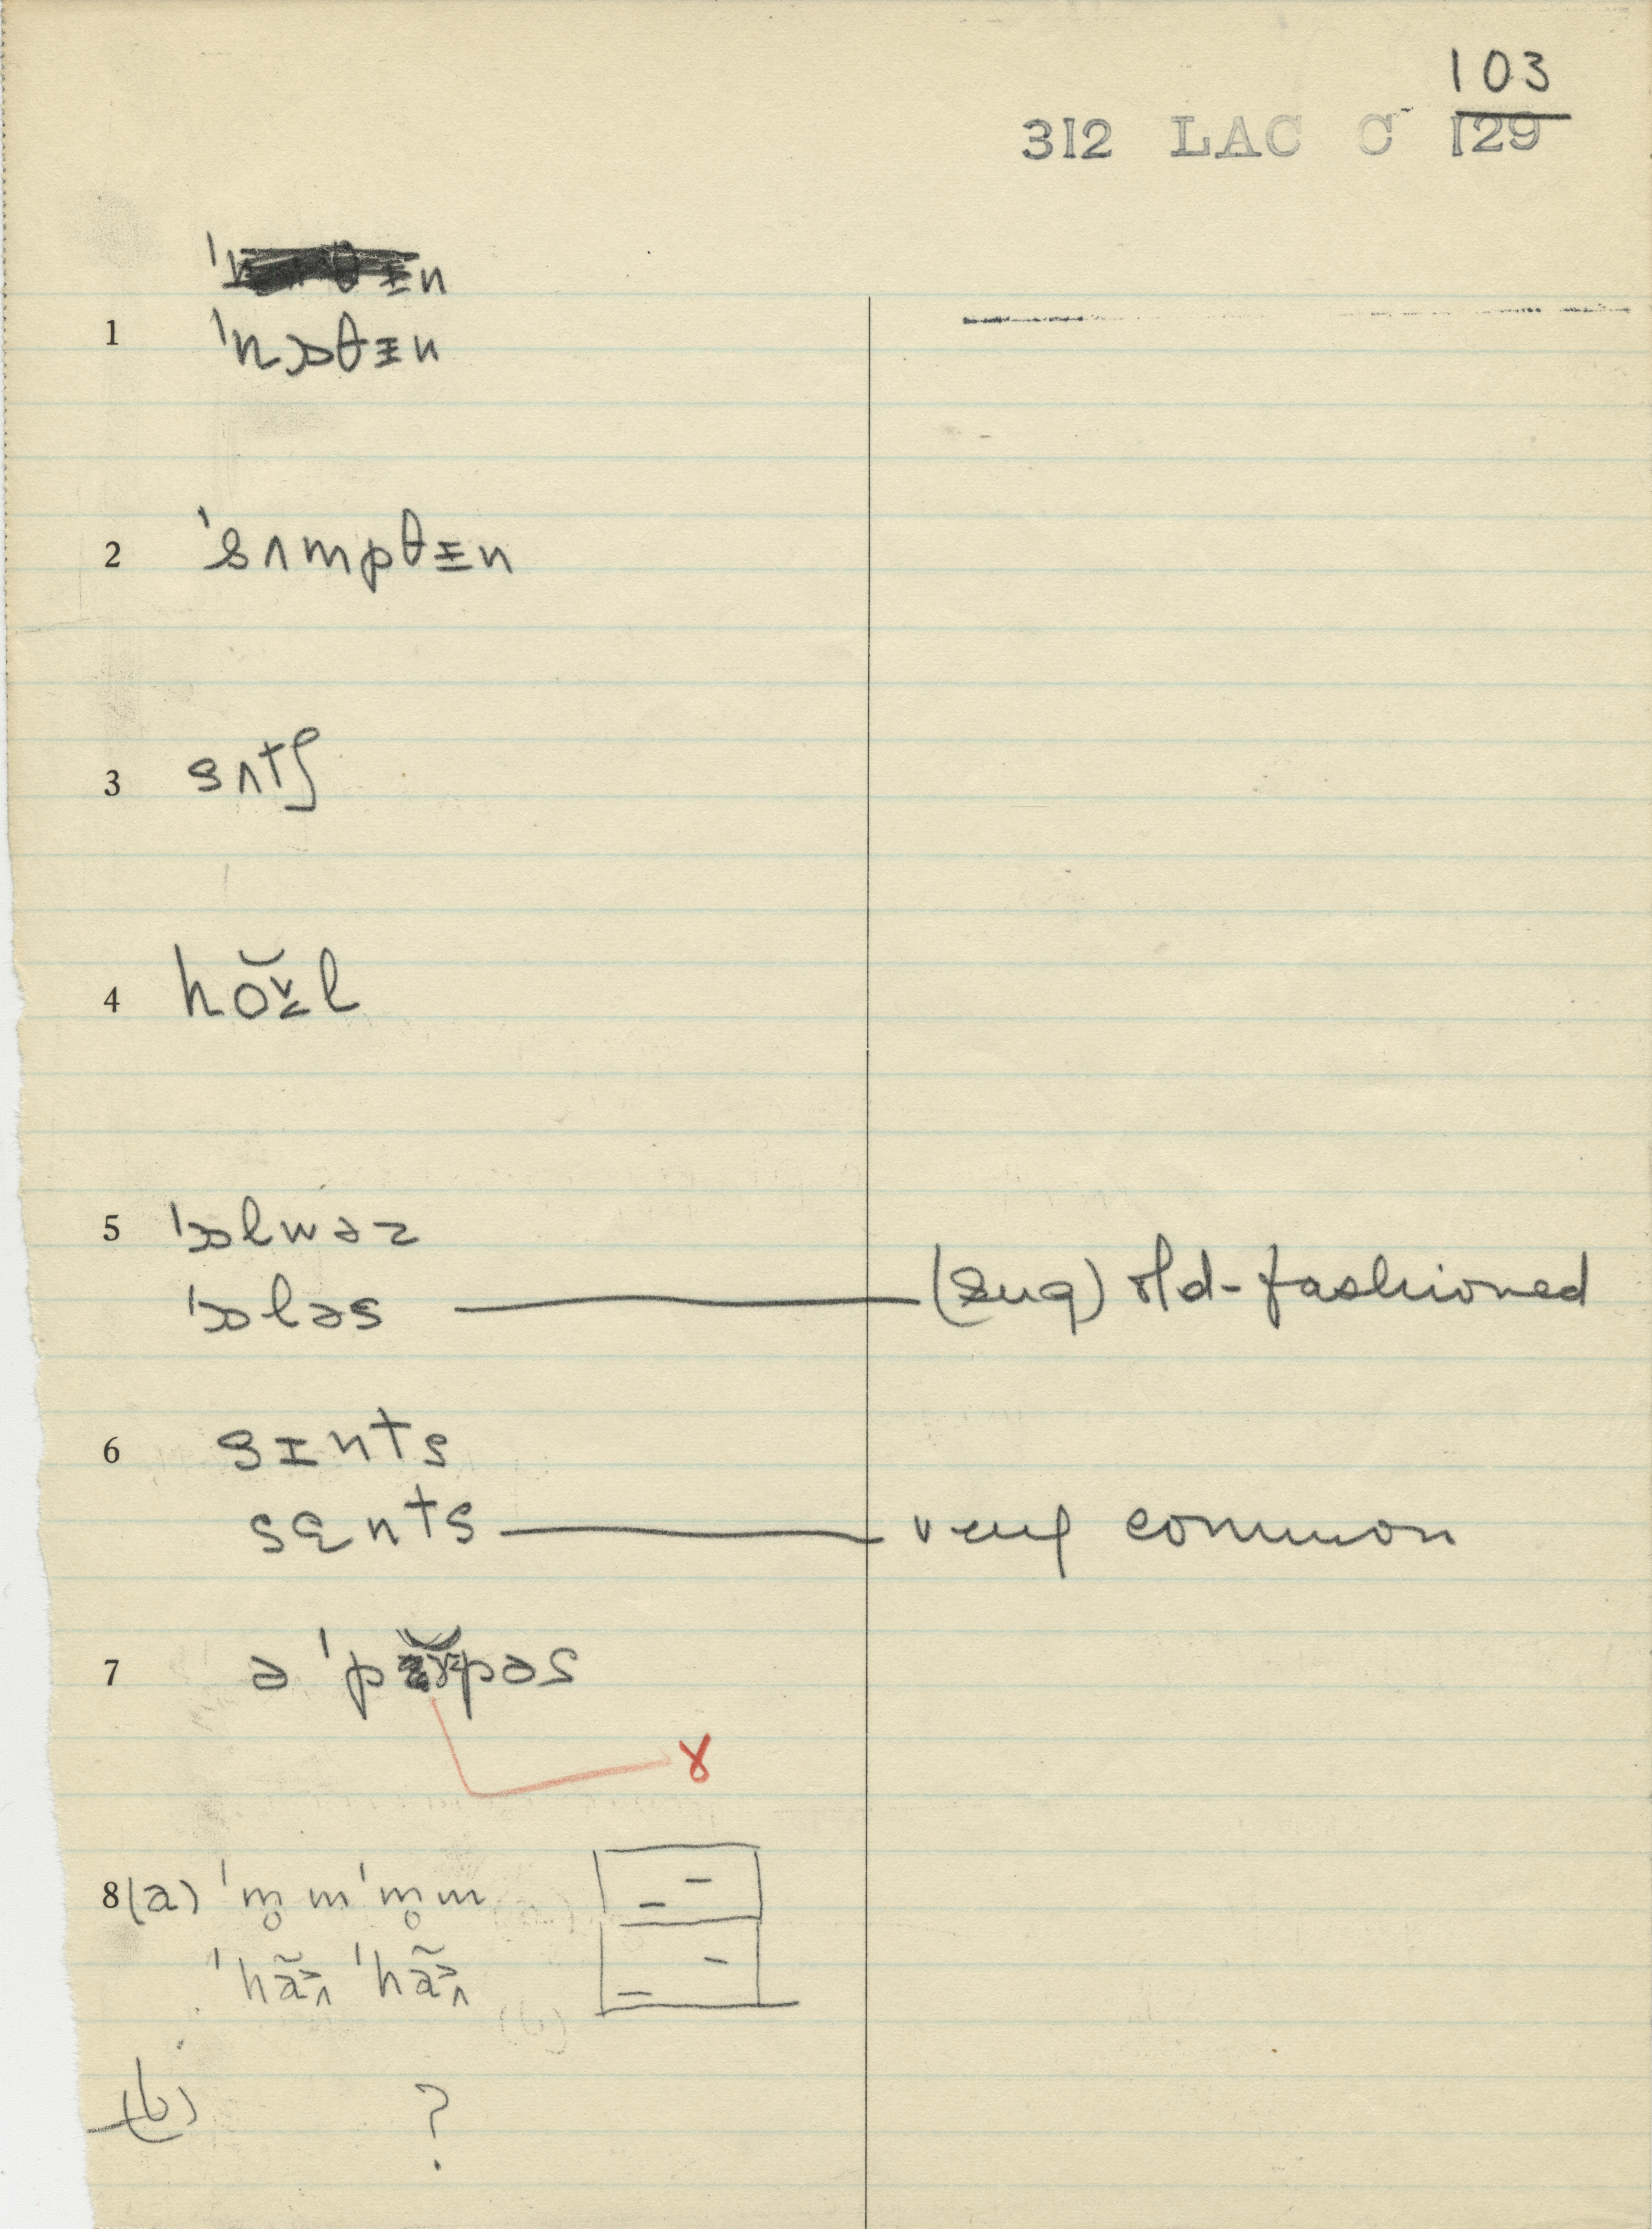 103
312 LAC C 129
1 ˈnɔθɪn
2 ˈsʌmpθɪn
3 sʌtʃ
4 hol
5 ˈɔlwəz
ˈɔləs (sug) old-fashioned
6 sɪnts
sɛnts very common
7 ə ˈpɤpəs
ɤ
8 (a) ˈm̥mˈm̥m
ˈhãʌ ˈhãʌ
(b) ?